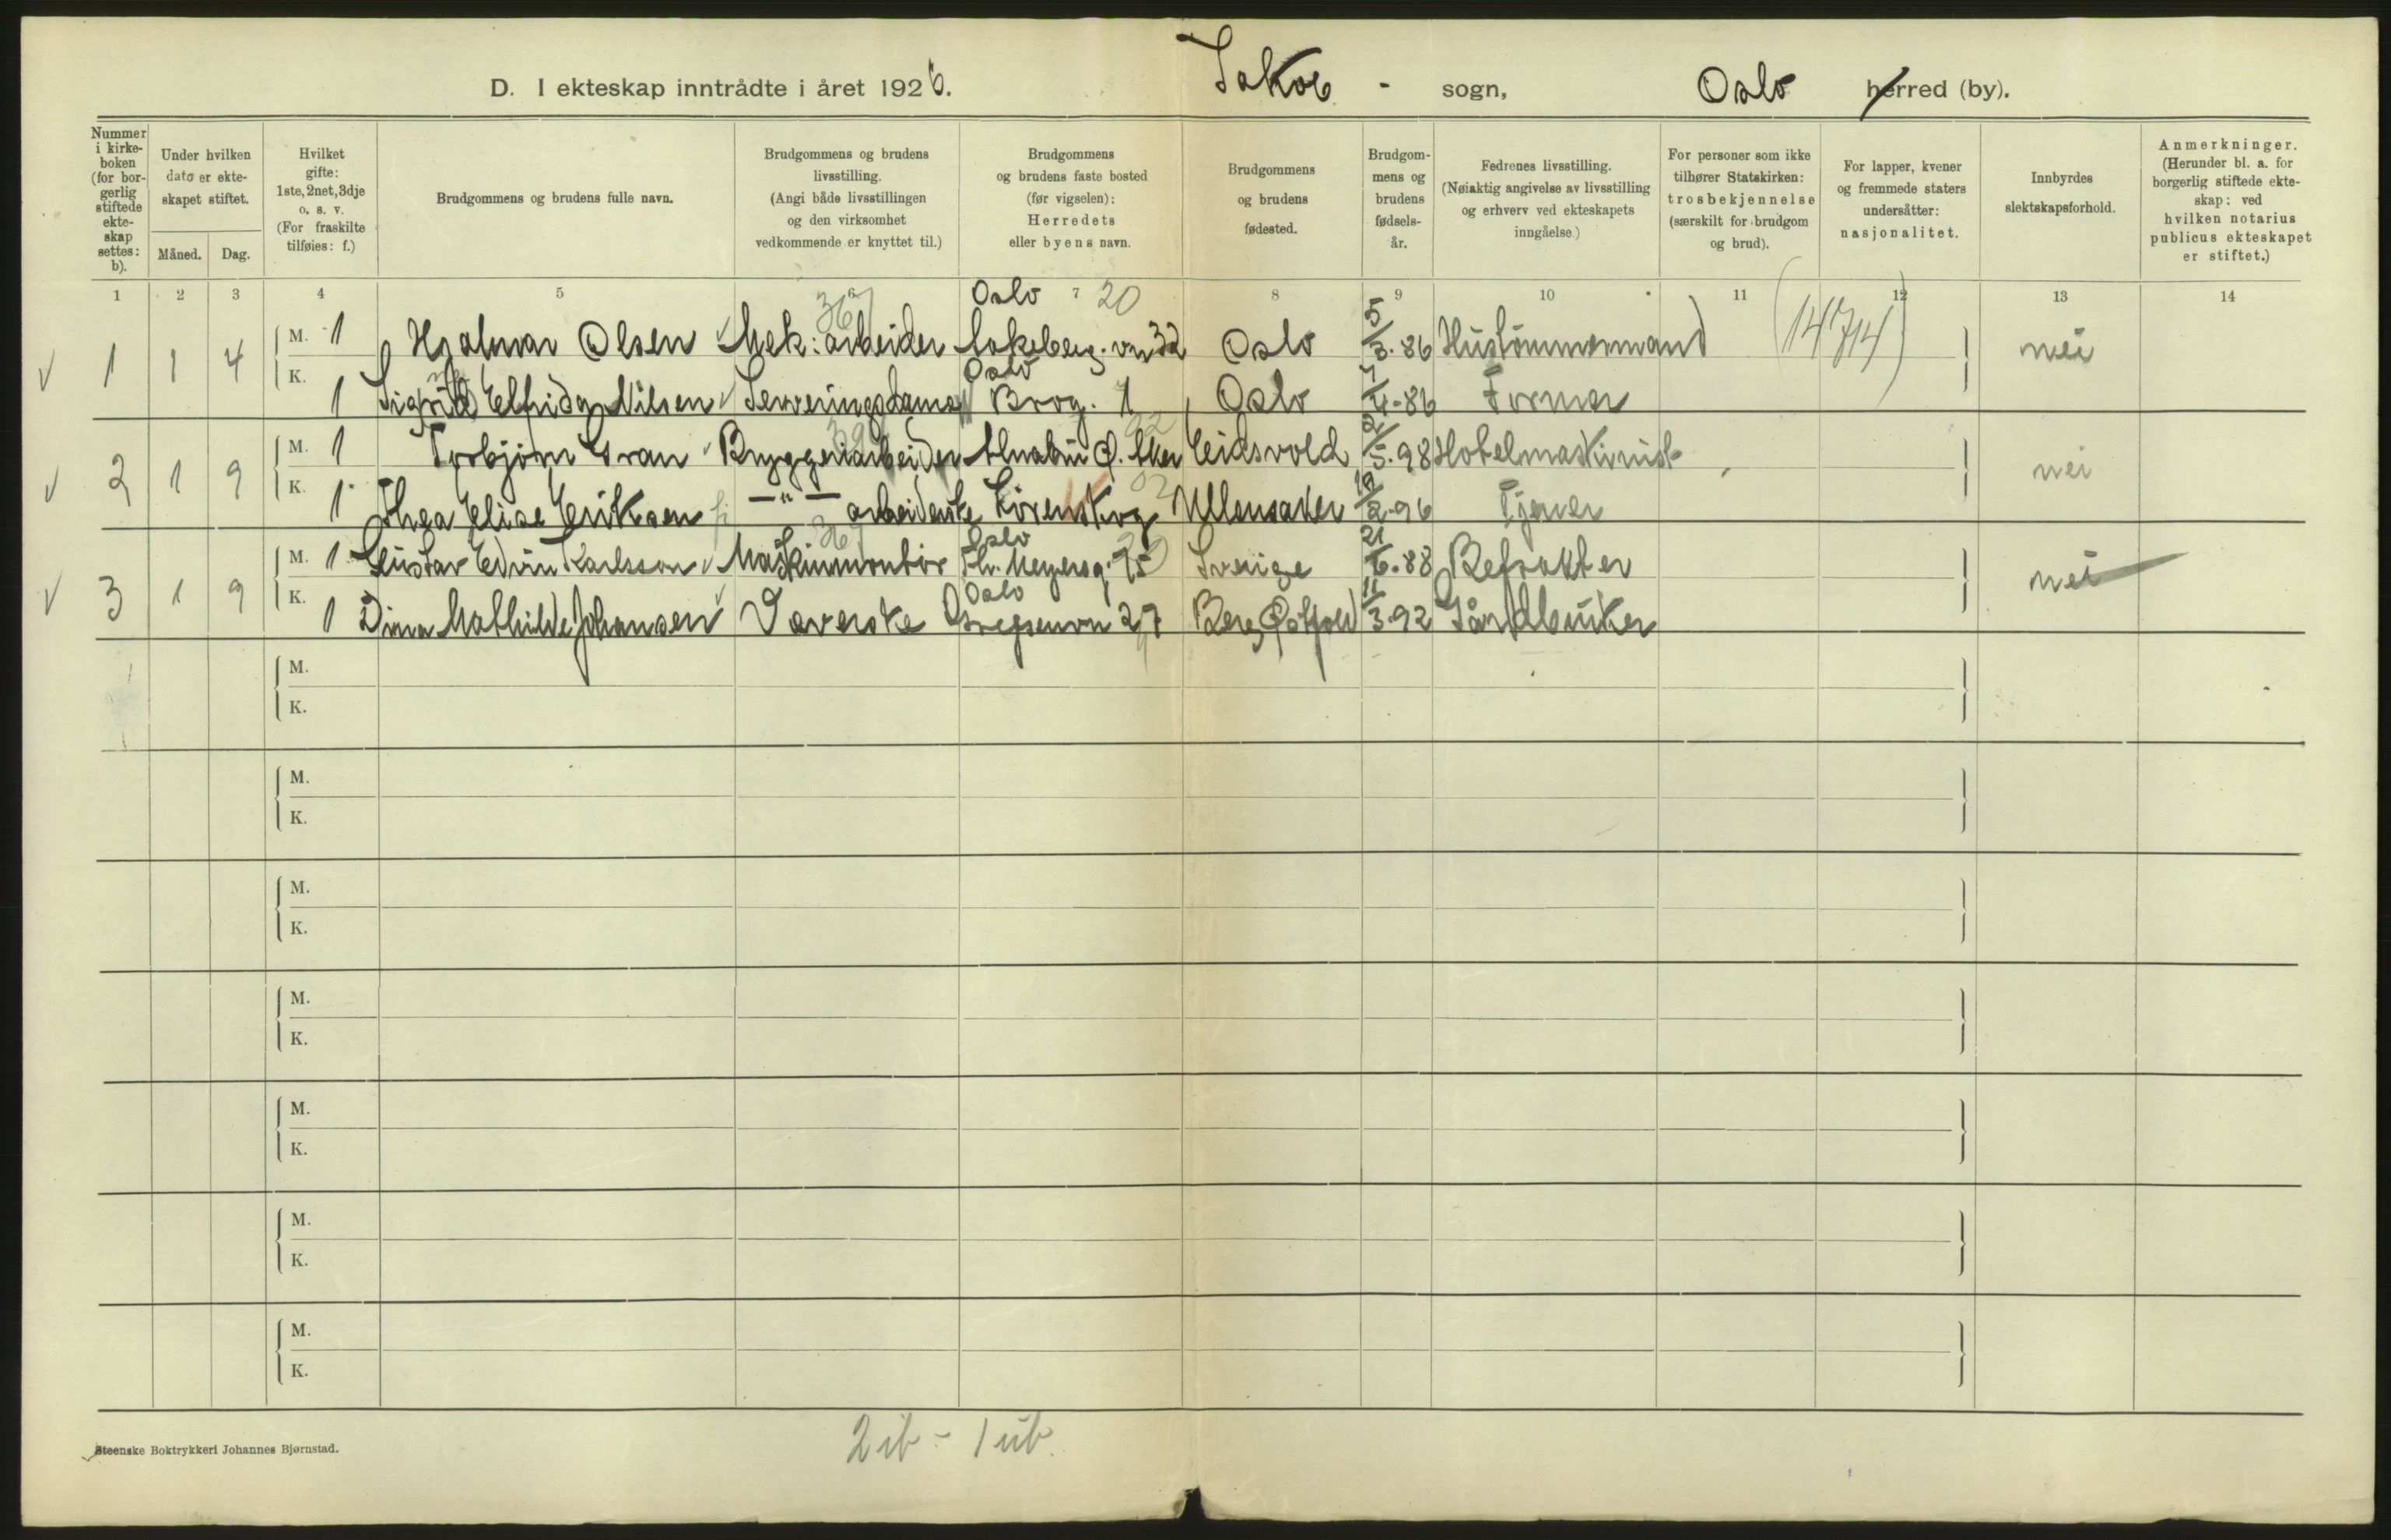 D. I ekteskap inntrådte i året 1926. Jakob - sogn, Oslo herred (by).
Nummer i kirke-boken (for bor-gerlig stiftede ekte-skap settes: b).
Under hvilken dato er ekte-skapet stiftet.
Måned. Dag.
Hvilket gifte: 1ste, 2net, 3dje o. s. v. (For fraskilte tilføies: f.)
Brudgommens og brudens fulle navn.
Brudgommens og brudens livsstilling. (Angi både livsstillingen og den virksomhet vedkommende er knyttet til.)
Brudgommens og brudens faste bosted (før vigselen): Herredets eller byens navn.
Brudgommens og brudens fødested.
Brudgom-mens og brudens fødsels-år.
Fedrenes livsstilling. (Nøiaktig angivelse av livsstilling og erhverv ved ekteskapets inngåelse.)
For personer som ikke tilhører Statskirken: trosbekjennelse (særskilt for brudgom og brud).
For lapper, kvener og fremmede staters undersåtter: nasjonalitet.
Innbyrdes slektskapsforhold.
Anmerkninger. (Herunder bl. a. for borgerlig stiftede ekte-skap: ved hvilken notarius publicus ekteskapet er stiftet.)
1 2 3 4 5 6 7 8 9 10 11 12 13 14
Oslo 20
1 1 4 M. 1 Hjalmar Olsen Mek: arbeider Lakeberg.vn 32 Oslo 5/3.86 Hustømmermand (14714) nei
Oslo
K. 1 Sigrid Elfrida Nilsen Serveringsdame Brog. 1 Oslo /4-86 Former
2 1 9 M. 1 Torbjørn Gran Bryggeriarbeider Alnabru Ø. Aker Eidsvold 2/5.98 Hotelmaskinist nei
K. 1 Thea Elise Eriksen —"— arbeiderske Lørenskog Ullensaker 19/2-96 Tjener
Oslo
3 1 9 M. 1 Gustav Edvin Karlsson Maskinmontør Th. Meyersg. 75 Sverige 21/6.88 Befrakter nei
Oslo
K. 1 Dina Mathilde Johansen Væverske Gregsenvn 27 Berg Østfold 11/3.92 Gårdbruker
M.
K.
M.
K.
M.
K.
M.
K.
M.
K.
M.
K.
M.
K.
2 ib - 1 ub.
Steenske Boktrykkeri Johannes Bjørnstad.